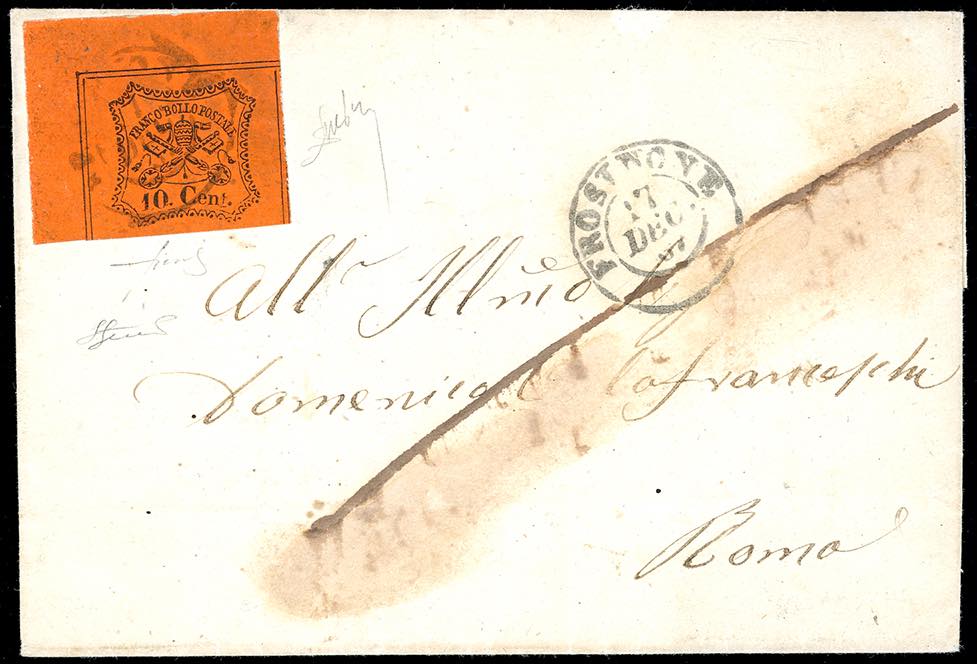 FRANCO BOLLO POSTALE
10. Cent.
FROSINONE
17
DEC.
67
All' Illmo
Domenico Cofranceschi
Roma